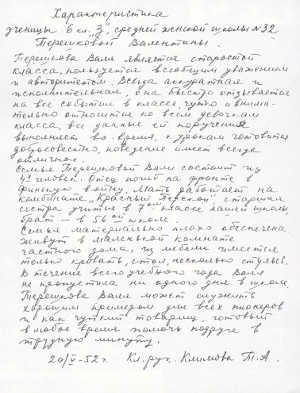 Характеристика
ученицы 6 кл. "З" средней женской школы №32
Терешковой Валентины.
Терешкова Валя является старостой
класса, пользуется всеобщим уважением
и авторитетом. Всегда аккуратная и
исполнительная, она быстро отзывается
на все события в классе, чутко и внима-
тельно относится ко всем девочкам
класса, все данные ей поручения
выполняет во-время, к урокам готовится
добросовестно, поведение имеет всегда
отличное.
Семья Терешковой Вали состоит из
4х человек. Отец погиб на фронте в
финскую войну. Мать работает на
комбинате "Красный Перекоп", старшая
сестра учится в классе нашей школы,
брат — в 56ой школе.
Семья материально плохо обеспечена
живут в маленькой комнате
частного дома, из мебели имеется
только кровать, стол, несколько стульев.
В течение всего учебного года Валя
не пропустила ни одного дня в школе.
Терешкова Валя может служить
хорошим примером для всех пионеров
и как чуткий товарищ, готовый
в любое время помочь подруге в
трудную минуту.
20/V-52г. Кл. рук. Климова Т.А.